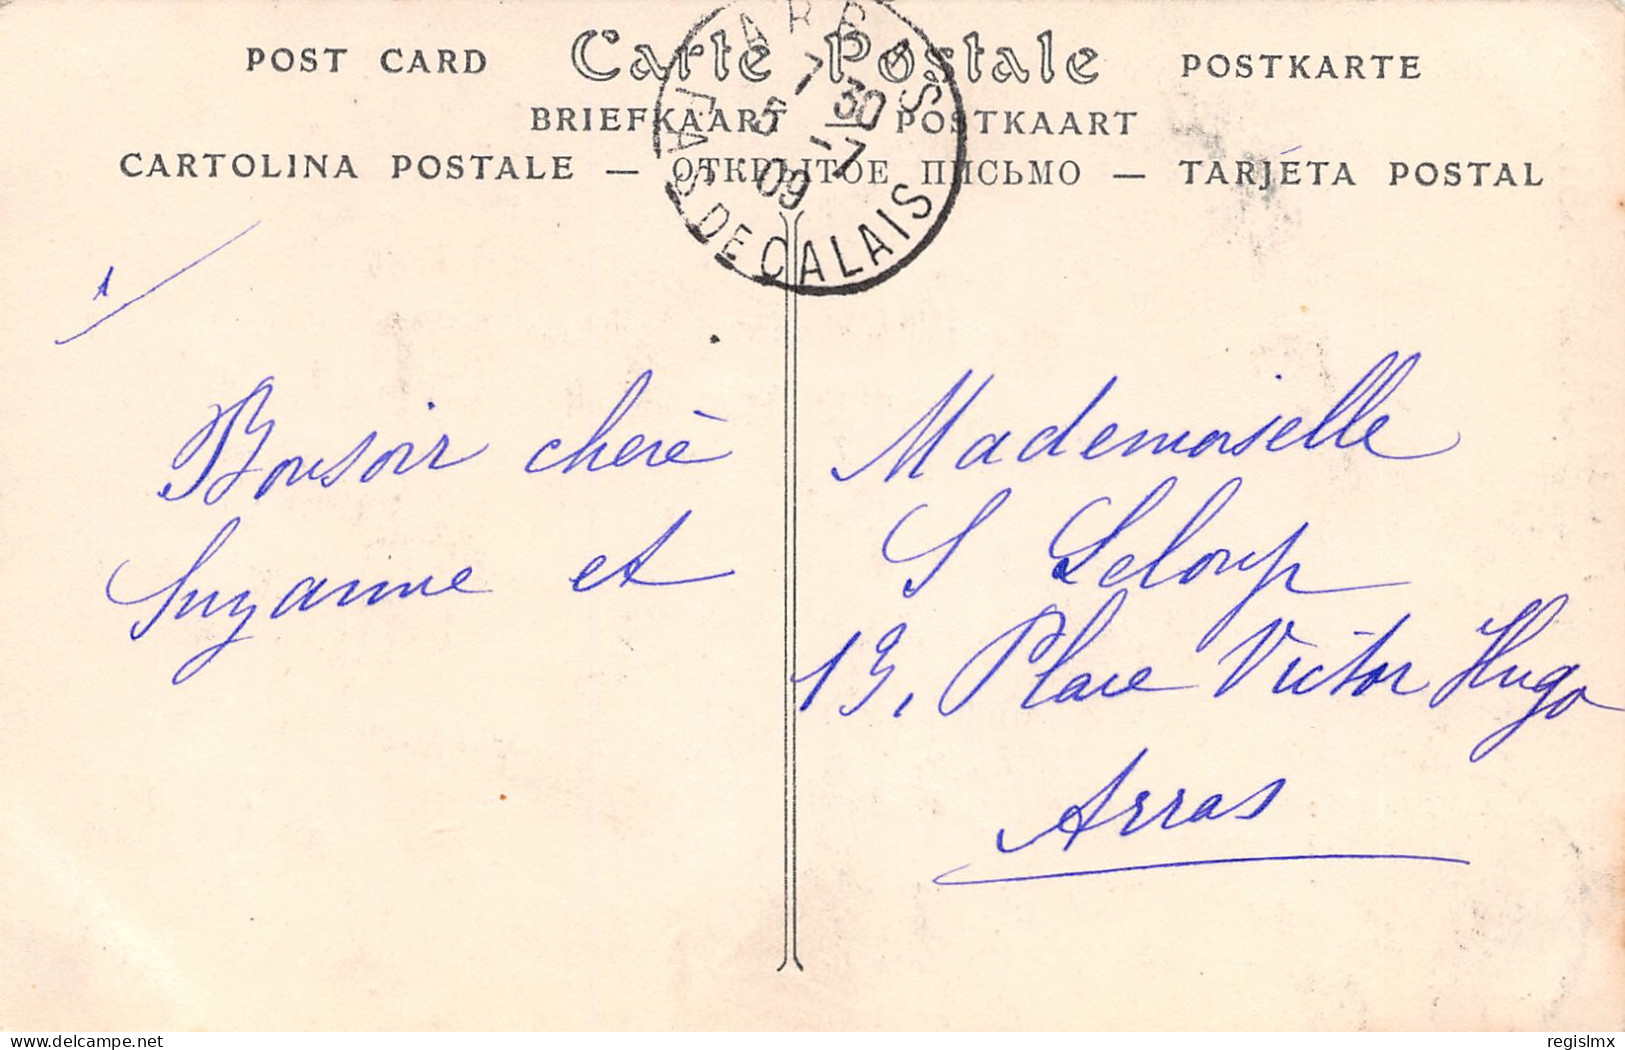 POST CARD Carte Postale POSTKARTE
BRIEFKAART — POSTKAART
CARTOLINA POSTALE — ОТКРЫТОЕ ПИСЬМО — TARJETA POSTAL
ARRAS
7 30
5 - 7
09
PAS DE CALAIS
1
Bonsoir cherè
Suzanne et
Mademoiselle
S Leloup
13, Place Victor Hugo
Arras
regislmx
delcampe.net